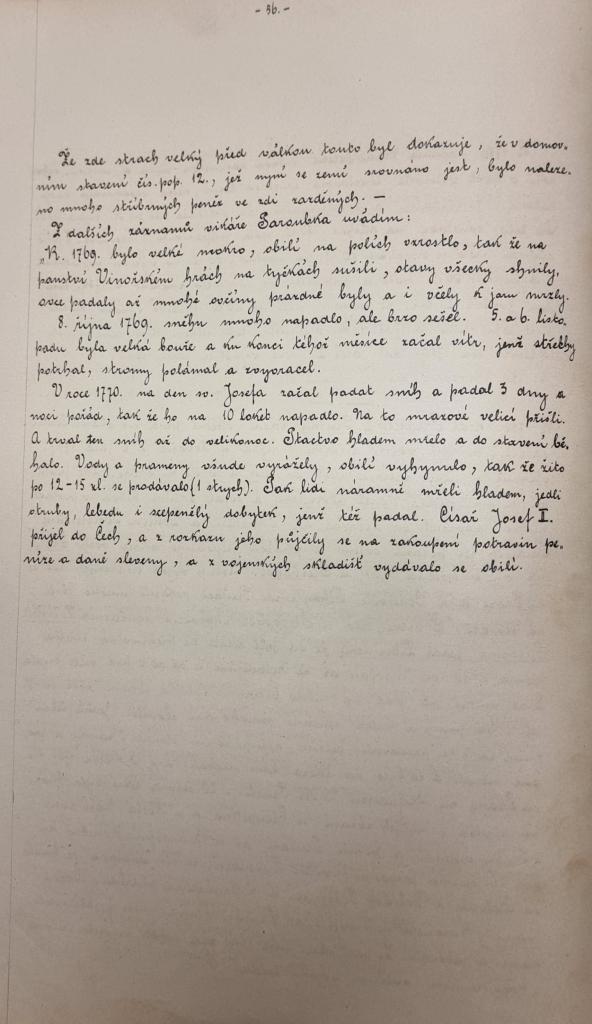 - 36. -
Že zde strach velký před válkou touto byl dokazuje, že v domov-
ním stavení čís. pop. 12., jež nyní se zemí srovnáno jest, bylo naleze-
no mnoho stříbrných peněz ve zdi zazděných. —
Z dalších záznamů vikáře Paroubka uvádím:
„R. 1769. bylo velké mokro, obilí na polích vzrostlo, tak že na
panství Vinořském hrách na tyčkách sušili, otavy všecky shnily,
ovce padaly až mnohé ovčíny prázdné byly a i včely k jaru mrzly.
8. října 1769. sněhu mnoho napadlo, ale brzo sešel. 5. a 6. listo-
padu byla velká bouře a ku konci téhož měsíce začal vítr, jenž střechy
potrhal, stromy polámal a zvyvracel.
V roce 1770. na den sv. Josefa začal padat sníh a padal 3 dny a
noci pořád, tak že ho na 10 loket napadlo. Na to mrazové velicí přišli.
A trval ten sníh až do velikonoc. Ptactvo hladem mřelo a do stavení bě-
halo. Vody a prameny všude vyrážely, obilí vyhynulo, tak že žito
po 12-15 zl. se prodávalo (1 strych). Pak lidi náramně mřeli hladem, jedli
otruby, lebedu i scepenělý dobytek, jenž též padal. Císař Josef II.
přijel do Čech, a z rozkazu jeho půjčily se na zakoupení potravin pe-
níze a daně sleveny, a z vojenských skladišť vydávalo se obilí.